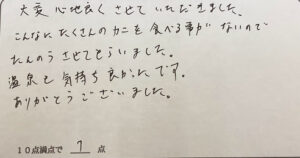 大変心地良くさせていただきました。
こんなにたくさんのカニを食べる事がないので
たんのうさせてもらいました。
温泉も気持ち良かったです。
ありがとうございました。
10点満点で 9 点